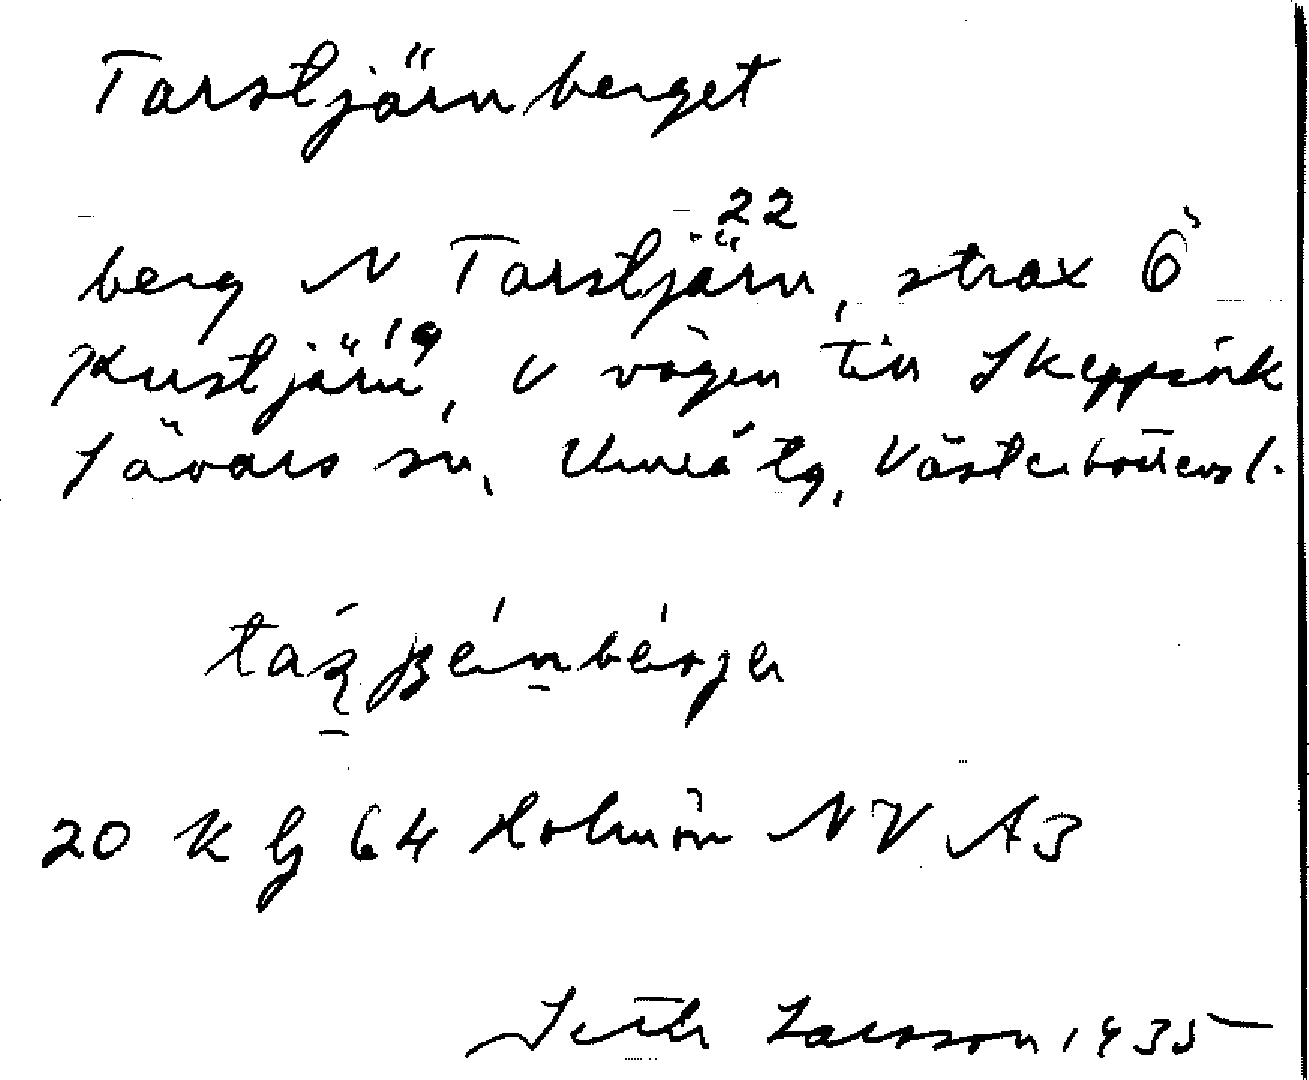 Tarstjärnberget
berg N Tarstjärn 22, strax Ö
Kustjärn 19, V vägen till Skeppsvik
Sävars sn, Umeå tg, Västerbottens l.
20 K lj 64 Holmön NV A3
Seth Larsson 1935